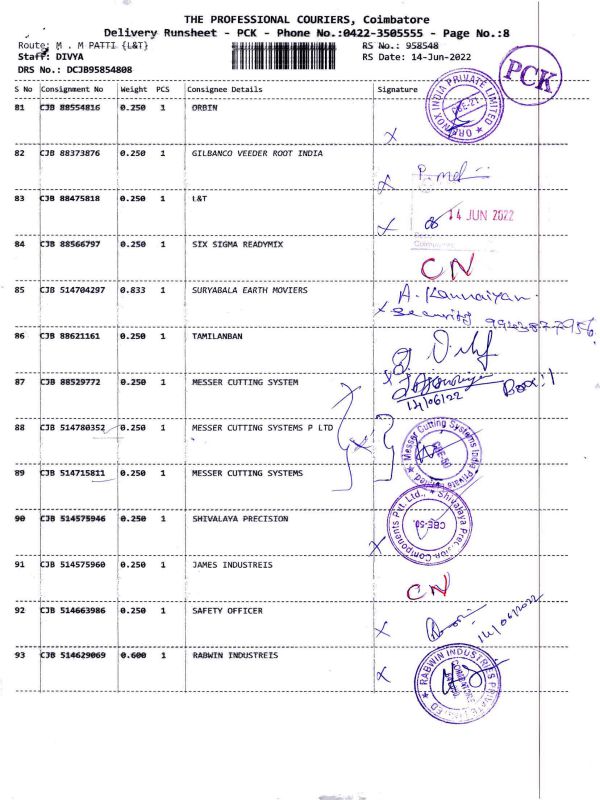 THE PROFESSIONAL COURIERS, Coimbatore
Delivery Runsheet - PCK - Phone No.:0422-3505555 - Page No.:8
Route: M . M PATTI {L&T} RS No.: 958548
Staff: DIVYA RS Date: 14-Jun-2022
DRS No.: DCJB95854808
PCK
S No Consignment No Weight PCS Consignee Details Signature
81 CJB 88554816 0.250 1 ORBIN
INDIA PRIVATE LIMITED
CBE-21
82 CJB 88373876 0.250 1 GILBANCO VEEDER ROOT INDIA
83 CJB 88475818 0.250 1 L&T
14 JUN 2022
84 CJB 88566797 0.250 1 SIX SIGMA READYMIX
CN
85 CJB 514704297 0.833 1 SURYABALA EARTH MOVIERS
A. Kannaiyan.
Security 9943877956
86 CJB 88621161 0.250 1 TAMILANBAN
87 CJB 88529772 0.250 1 MESSER CUTTING SYSTEM
14/06/22
88 CJB 514780352 0.250 1 MESSER CUTTING SYSTEMS P LTD
Messer Cutting Systems India Private Limited
CBE-50
89 CJB 514715811 0.250 1 MESSER CUTTING SYSTEMS
90 CJB 514575946 0.250 1 SHIVALAYA PRECISION
Shivalaya Precision Components Pvt. Ltd.,
CBE-50.
91 CJB 514575960 0.250 1 JAMES INDUSTREIS
CN
92 CJB 514663986 0.250 1 SAFETY OFFICER
14/06/2022
93 CJB 514629069 0.600 1 RABWIN INDUSTREIS
RABWIN INDUSTRIES PRIVATE LIMITED
COIMBATORE